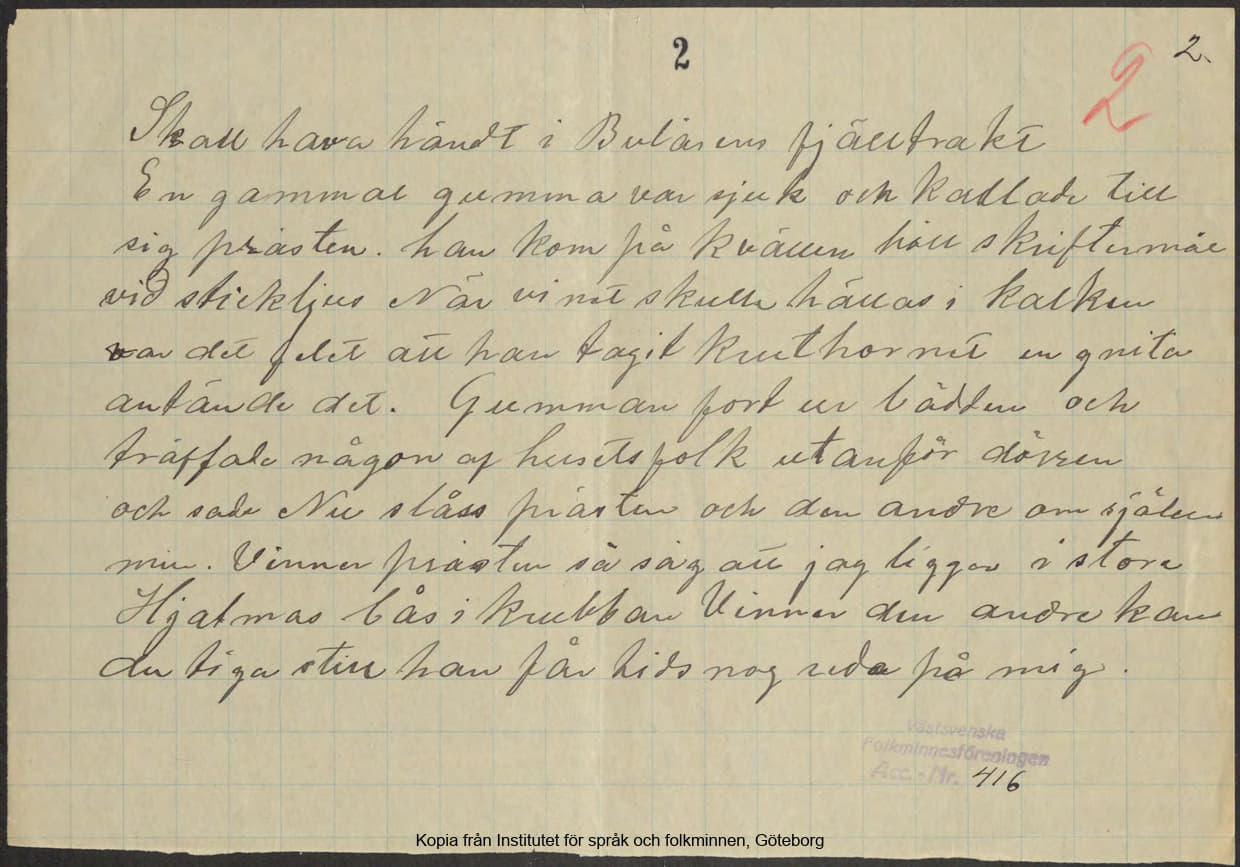 2
2.
2
Skall hava händt i Bulåsens fjälltrakt
En gammal gumma var sjuk och kallade till
sig prästen. han kom på kvällen höll skriftermål
vid stickljus När vinet skulle hällas i kalken
var det felet att han tagit kruthornet en gnita
antände det. Gumman fort ur bädden och
träffade någon af husets folk utanför dörren
och sade Nu slåss prästen och den andre om själen
min. Vinner prästen så säg att jag ligger i store
Hjalmas bås i krubban Vinner den andre kan
du tiga still han får tids nog reda på mig.
Västsvenska
Folkminnesföreningen
Acc. - Nr. 416
Kopia från Institutet för språk och folkminnen, Göteborg